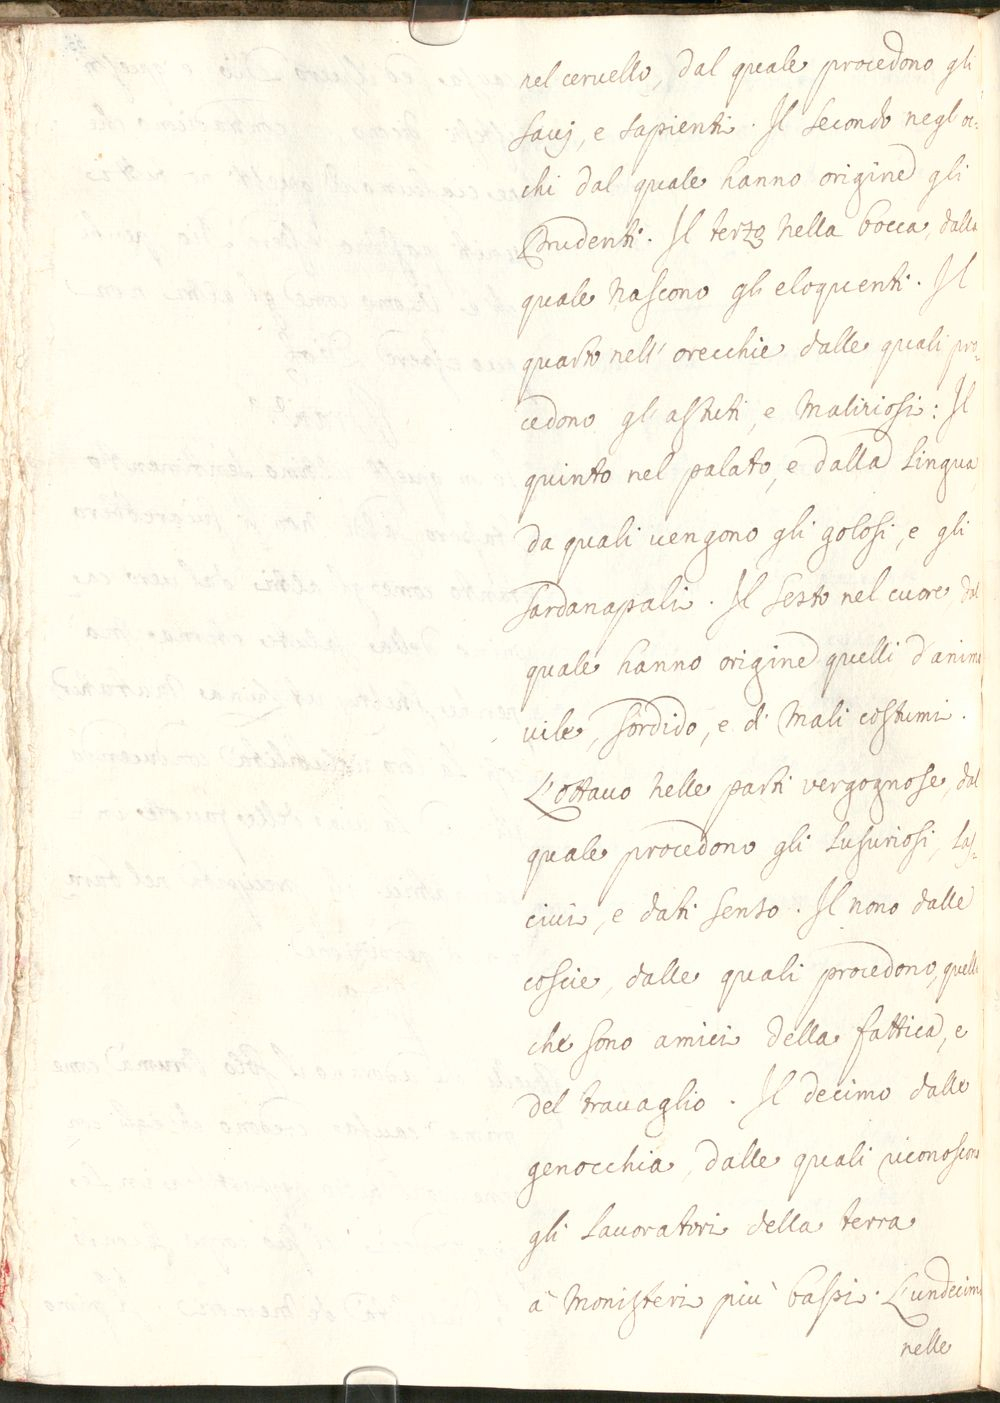 nel ceruello, dal quale procedono gli
sauj, e sapienti. Il secondo negl oc=
chi dal quale hanno origine gli
Prudenti. Il terzo nella bocca, dalla
quale nascono gli eloquenti. Il
quarto nell' orecchie dalle quali pro=
cedono gl' astuti, e maliziosi: Il
quinto nel palato, e dalla lingua
da quali uengono gli golosi, e gli
sardanapali. Il sesto nel cuore, dal
quale hanno origine quelli d'anima
uile, sordido, e di mali costumi.
L'ottauo nelle parti vergognose, dal
quale procedono gli lusuriosi, las=
ciui, e dati senso. Il nono dalle
coscie, dalle quali procedono, quelli
che sono amici della fattica, e
del trauaglio. Il decimo dalle
genocchia, dalle quali riconoscono
gli lauoratori della terra
à monisteri più bassi. L'undecimo
nelle